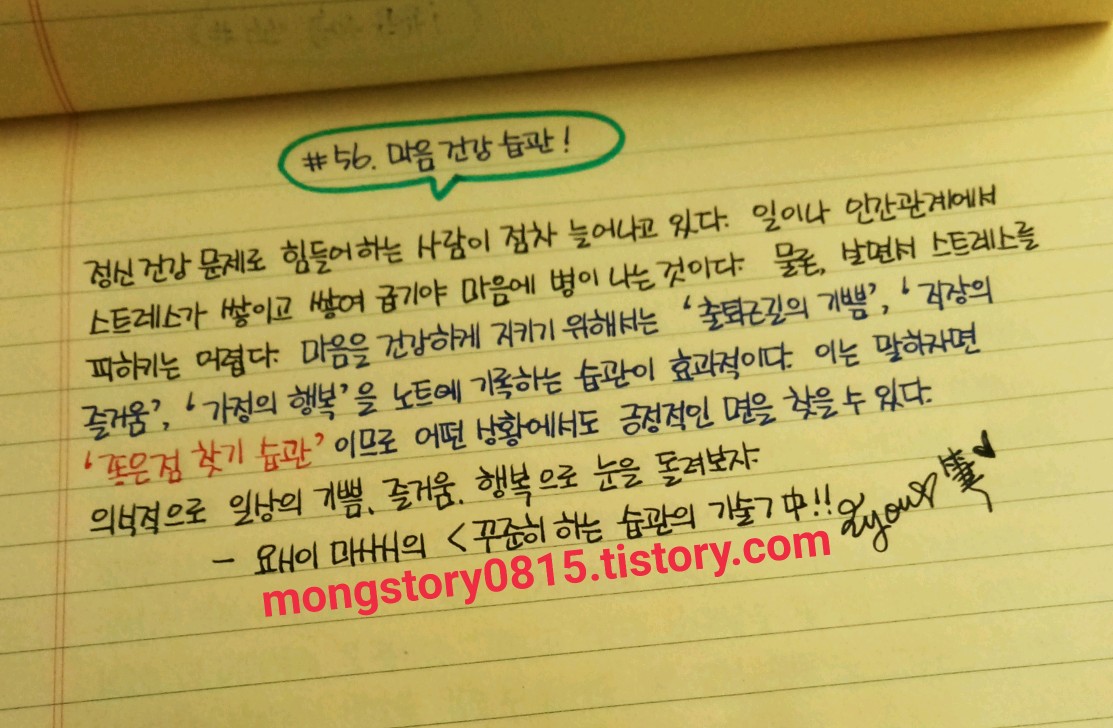 #56.마음 건강 습관!
정신 건강 문제로 힘들어하는 사람이 점차 늘어나고 있다. 일이나 인간관계에서
스트레스가 쌓이고 쌓여 급기야 마음에 병이 나는 것이다. 물론, 살면서 스트레스를
피하기는 어렵다. 마음을 건강하게 지키기 위해서는 '출퇴근길의 기쁨', '직장의
즐거움', '가정의 행복'을 노트에 기록하는 습관이 효과적이다. 이는 말하자면
'좋은점 찾기 습관'이므로 어떤 상황에서도 긍정적인 면을 찾을 수 있다.
의식적으로 일상의 기쁨, 즐거움, 행복으로 눈을 돌려보자.
- 요시이 마사시의 <꾸준히 하는 습관의 기술> 中!!
mongstory0815.tistory.com